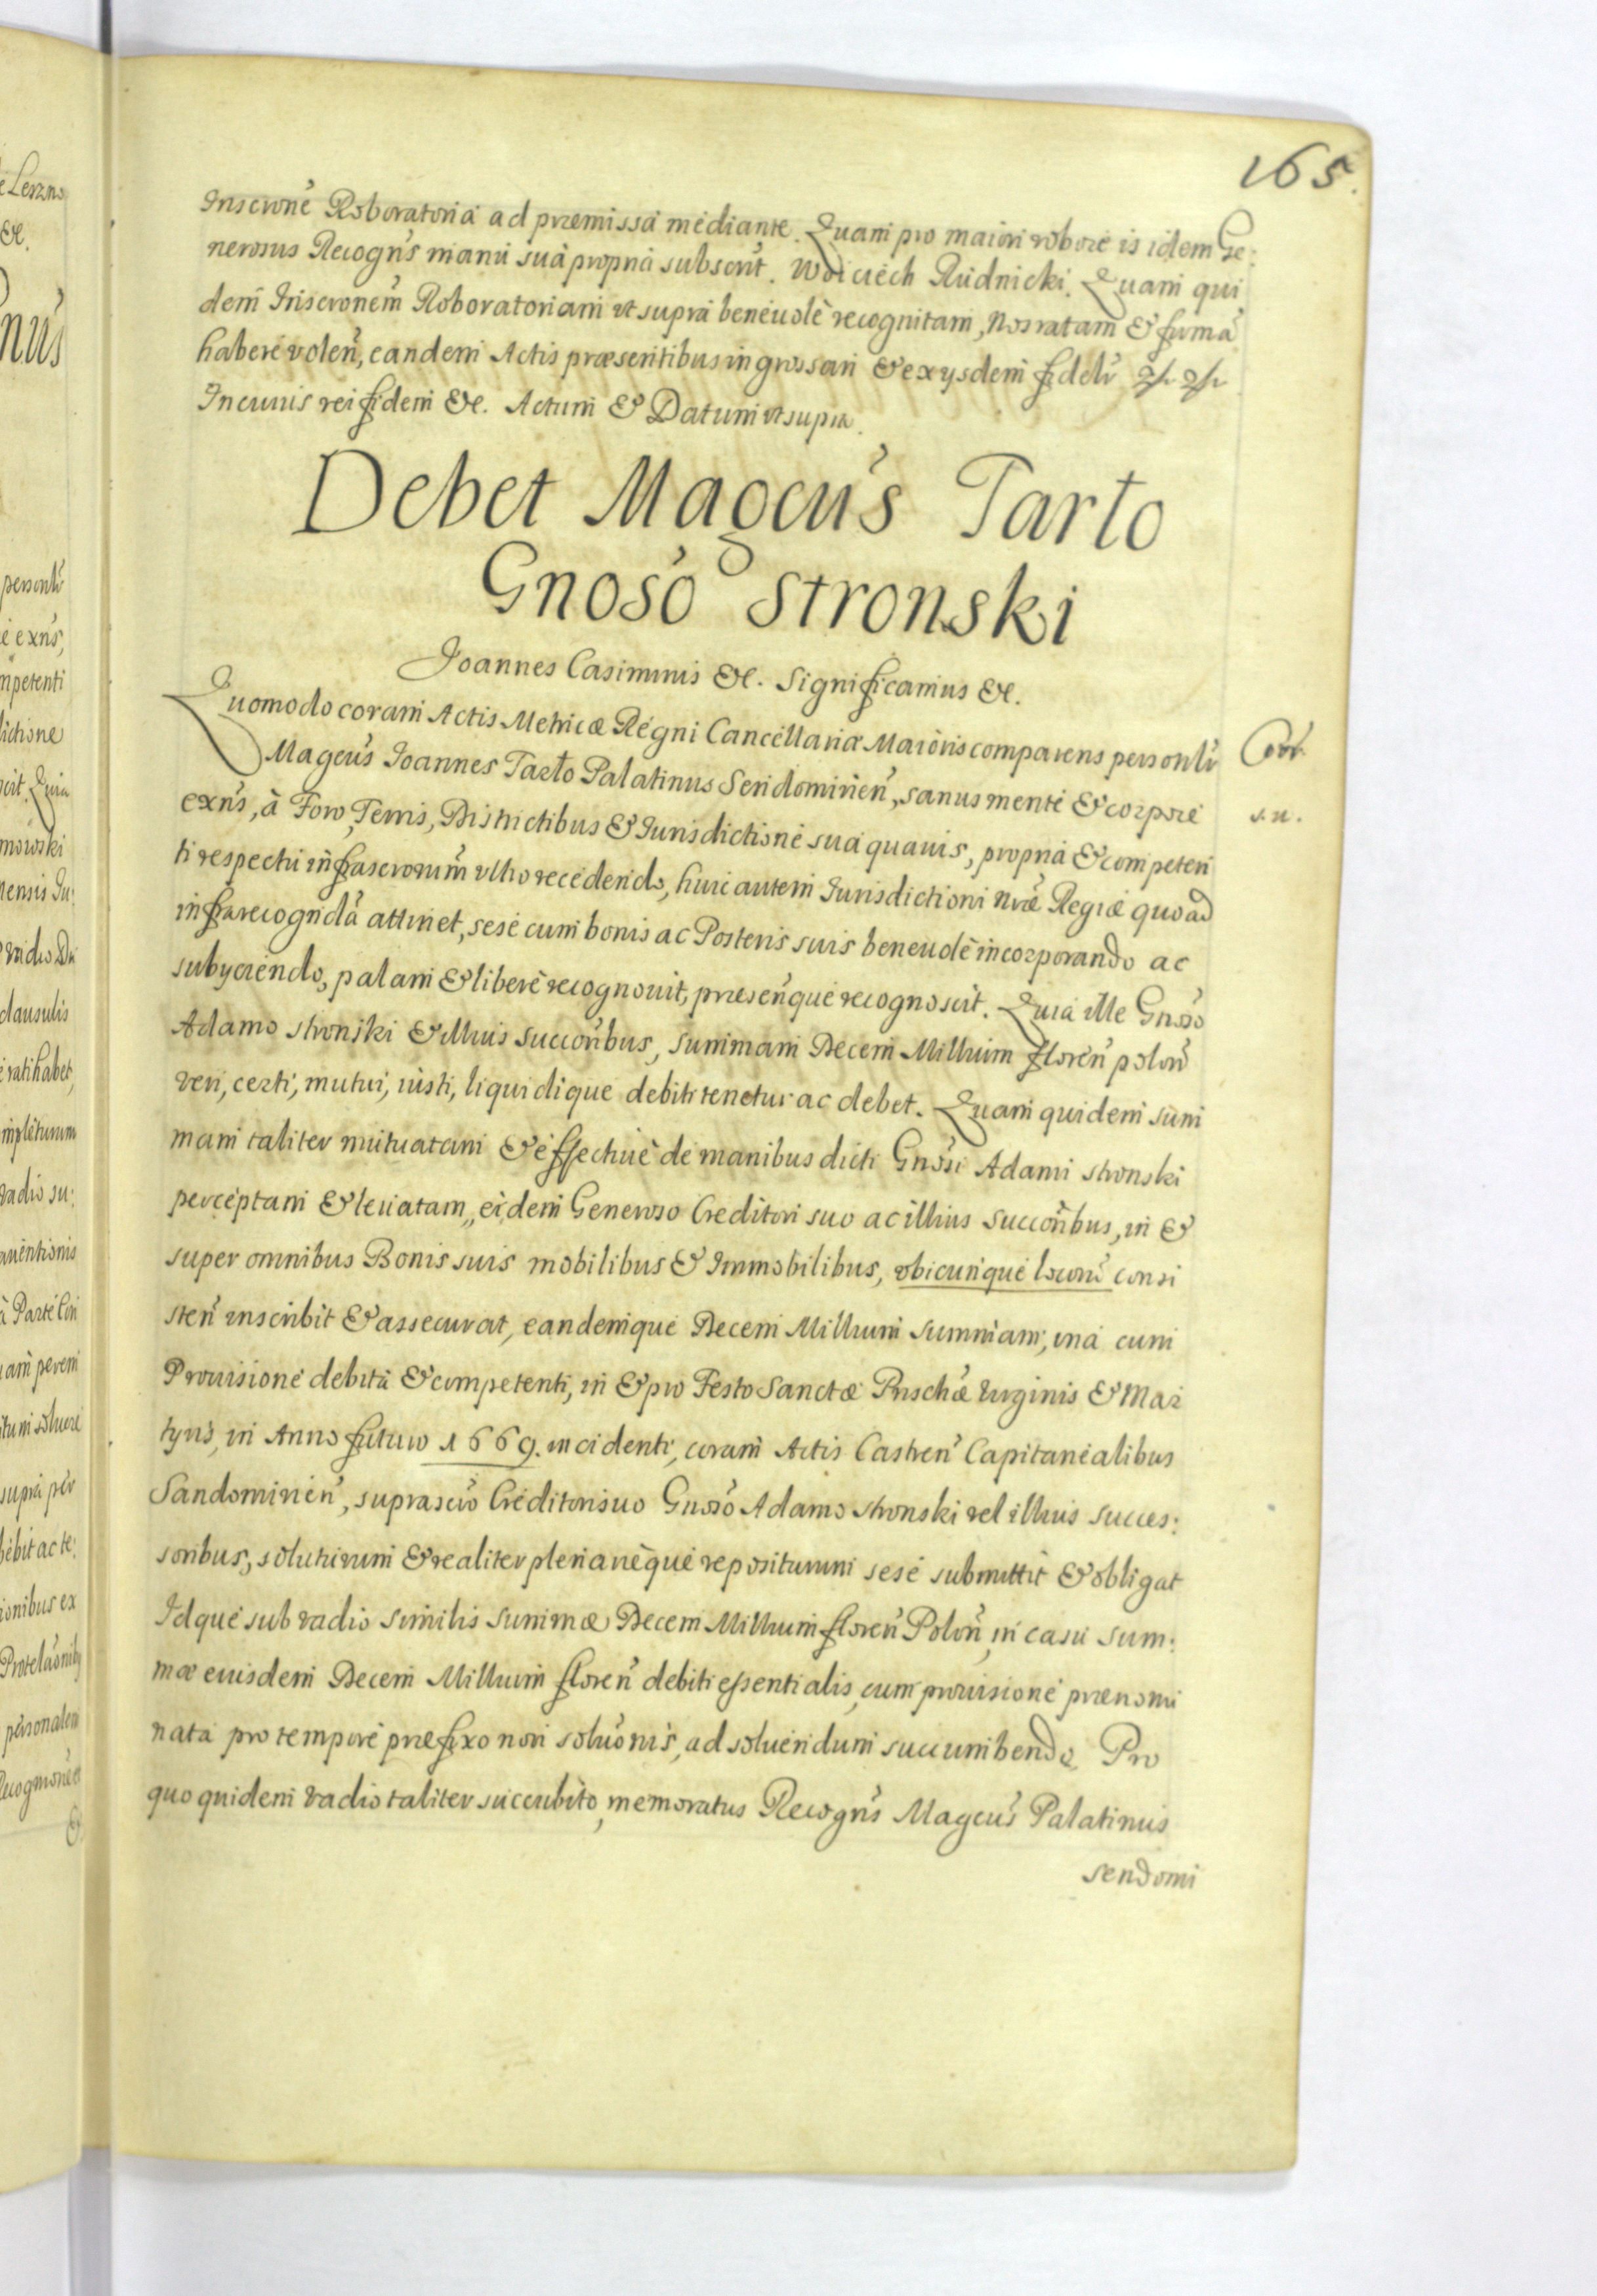 165.
Inscrone Roboratoria ad præmissa mediante. Quam pro maiori robore is idem Ge:
nerosus Recogns manu sua propria subscrit. Woiciech Rudnicki. Quam qui
dem Inscronem Roboratoriam ut supra beneuolè recognitam, Nos ratam & firma
habere volen, eandem Actis præsentibus ingrossari & ex ysdem fideli
In cuius rei fidem &c. Actum & Datum ut supra.
Debet Magcus Tarło
Gnoso Stronski
Joannes Casimirus &c. Significamus &c.
Quomodo coram Actis Metricæ Regni Cancellariæ Maioris comparens personlr
Corr.
Magcus Joannes Tarło Palatinus Sendomirien, sanus mente & corpore
s. n.
exns, à Foro, Terris, Districtibus & Jurisdictione sua quauis, propria & competen
ti respectu infrascrorum ultro recedendo, huic autem Jurisdictioni nræ Regiæ quoad
infrarecognda attinet, sese cum bonis ac Posteris suis beneuolè incorporando ac
subyciendo, palam & liberè recognouit, præsenque recognoscit. Quia ille Gnoso
Adamo Stronski & illius succoribus, summam Decem Millium floren polon
veri, certi, mutui, iusti, liquidique debiti tenetur ac debet. Quam quidem sum
mam taliter mutuatam & effectiuè de manibus dicti Gnosi Adami Stronski
perceptam & leuatam, eidem Generoso Creditori suo ac illius succoribus, in &
super omnibus Bonis suis mobilibus & Immobilibus, ubicunque locoru consi
sten inscribit & assecurat, eandemque Decem Millium summam, una cum
Prouisione debita & competenti, in & pro Festo Sanctæ Priscæ Virginis & Mar
tyris, in Anno futuro 1669. incidenti, coram Actis Castren Capitanealibus
Sandomirien, suprascro Creditori suo Gnoso Adamo Stronski vel illius succes:
soribus, soluturum & realiter plenarièque repositurum sese submittit & obligat
Idque sub vadio similis summæ Decem Millium floren Polon, in casu sum:
mæ eiusdem Decem Millium floren debiti essentialis, cum prouisione prænomi
nata pro tempore præfixo non soluonis, ad soluendum succumbendo. Pro
quo quidem vadio taliter succubito, memoratus Recogns Magcus Palatinus
Sendomi